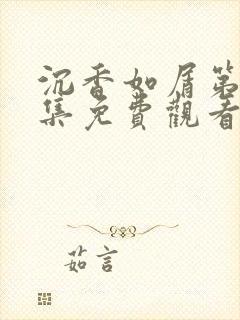 沉香如屑第
集免費觀看
茹言